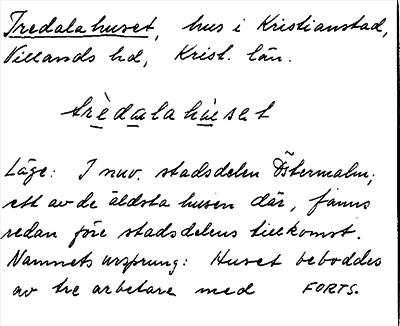 Tredalahuset, hus i Kristianstad,
Villands hd, Krist. län.
trèdalahùset
Läge: I nuv. stadsdelen Östermalm;
ett av de äldsta husen där, fanns
redan före stadsdelens tillkomst.
Namnets ursprung: Huset beboddes
av tre arbetare med FORTS.